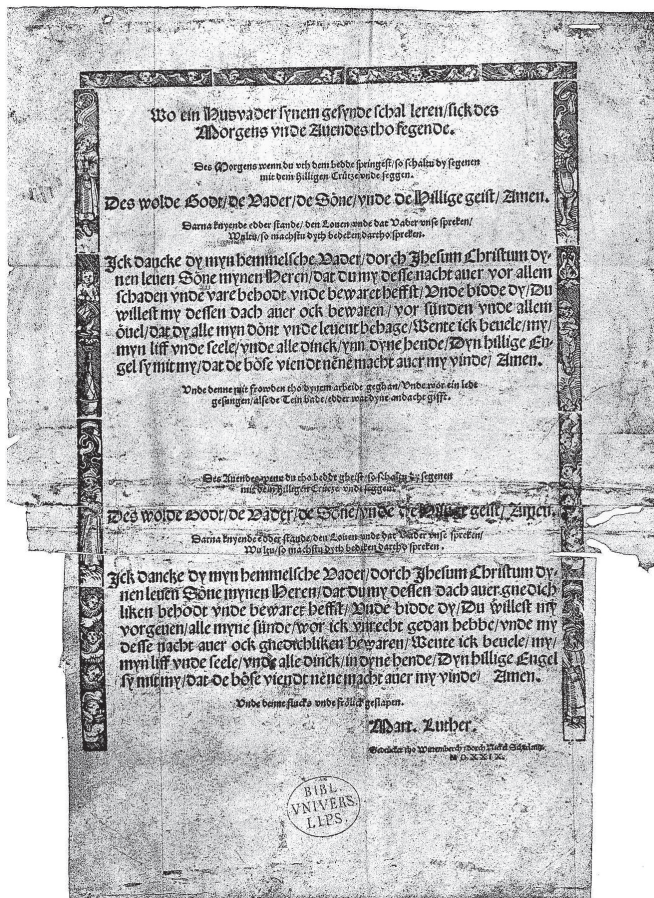 Wo ein Husvader synem gesynde schal leren/sick des
Morgens vnde Auendes tho segende.
Des Morgens wenn du vth dem bedde springest/so schaltu dy segenen
mit dem Hilligen Crütze vnde seggen.
Des wolde Godt/de Vader/de Söne/vnde de Hillige geist/Amen.
Darna knyende edder stande/den Louen vnde dat Vader vnse spreken/
Wultu/so machstu dyth bedeken dartho spreken.
Ick dancke dy myn hemmelsche Vader/dorch Jhesum Christum dy-
nen leuen Söne mynen Heren/dat du my desse nacht auer vor allem
schaden vnde vare behodt vnde bewaret heffst/Vnde bidde dy/Du
willest my dessen dach auer ock bewaren/vor sünden vnde allem
öuel/dat dy alle myn dönt vnde leuent behage/Wente ick beuele/my/
myn liff vnde seele/vnde alle dinck/ynn dyne hende/Dyn hillige En-
gel sy mit my/dat de böse viendt nēne macht auer my vinde/Amen.
Vnde denne mit frowden tho dynem arbeide geghan/Vnde wor ein ledt
gesungen/alse de Tein bade/edder wat dyne andacht gifft.
Des Auendes wenn du tho bedde gheist/so schaltu dy segenen
mit dem Hilligen Crütze vnde seggen.
Des wolde Godt/de Vader/de Söne/vnde de Hillige geist/Amen.
Darna knyende edder stande/den Louen vnde dat Vader vnse spreken/
Wultu/so machstu dyth bedeken dartho spreken.
Ick dancke dy myn hemmelsche Vader/dorch Jhesum Christum dy-
nen leuen Söne mynen Heren/dat du my dessen dach auer gnedich
liken behödt vnde bewaret heffst/Vnde bidde dy/Du willest my
vorgeuen/alle myne sünde/wor ick vnrecht gedan hebbe/vnde my
desse nacht auer ock gnedichliken bewaren/Wente ick beuele/my/
myn liff vnde seele/vnde alle dinck/in dyne hende/Dyn hillige Engel
sy mit my/dat de böse viendt nēne macht auer my vinde/Amen.
Vnde denne flucks vnde frölick geslapen.
Mart. Luther.
Gedrücket tho Wittenberch/dorch Nickel Schirlentz.
M D. XXIX.
BIBL.
VNIVERS.
LIPS.